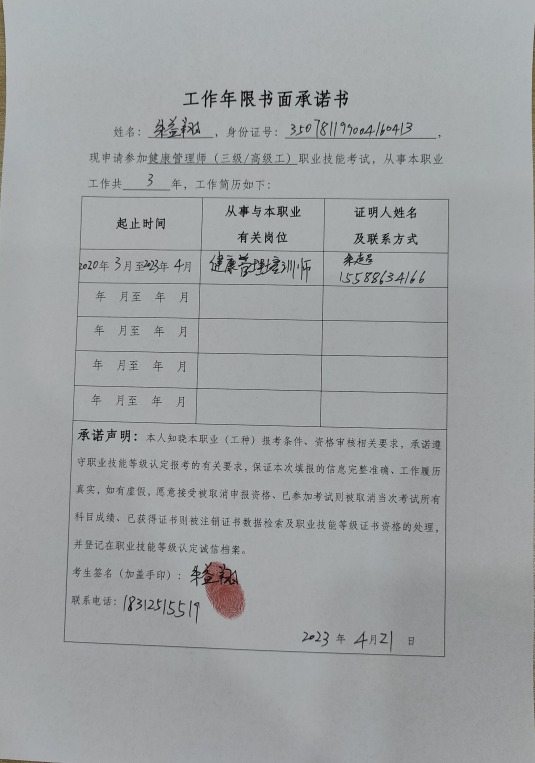 工作年限书面承诺书
姓名：，身份证号：350781199004160413，
现申请参加健康管理师（三级/高级工）职业技能考试，从事本职业
工作共3年，工作简历如下：
起止时间
从事与本职业
有关岗位
证明人姓名
及联系方式
2020年3月至2023年4月
健康管理培训师
15588634166
年 月至 年 月
年 月至 年 月
年 月至 年 月
年 月至 年 月
承诺声明：本人知晓本职业（工种）报考条件、资格审核相关要求，承诺遵
守职业技能等级认定报考的有关要求，保证本次填报的信息完整准确、工作履历
真实，如有虚假，愿意接受被取消申报资格、已参加考试则被取消当次考试所有
科目成绩、已获得证书则被注销证书数据检索及职业技能等级证书资格的处理，
并登记在职业技能等级认定诚信档案。
考生签名（加盖手印）：
联系电话：18312515519
2023年4月21日